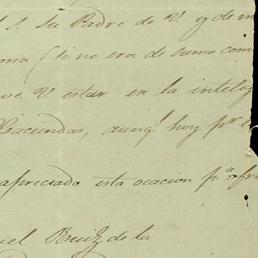 su Padre de V. y de m
(si no era de sumo com
ve V estar en la intelig
aung.e hoy p.r
apreciado esta ocacion p.a ofre
el Ruiz de la